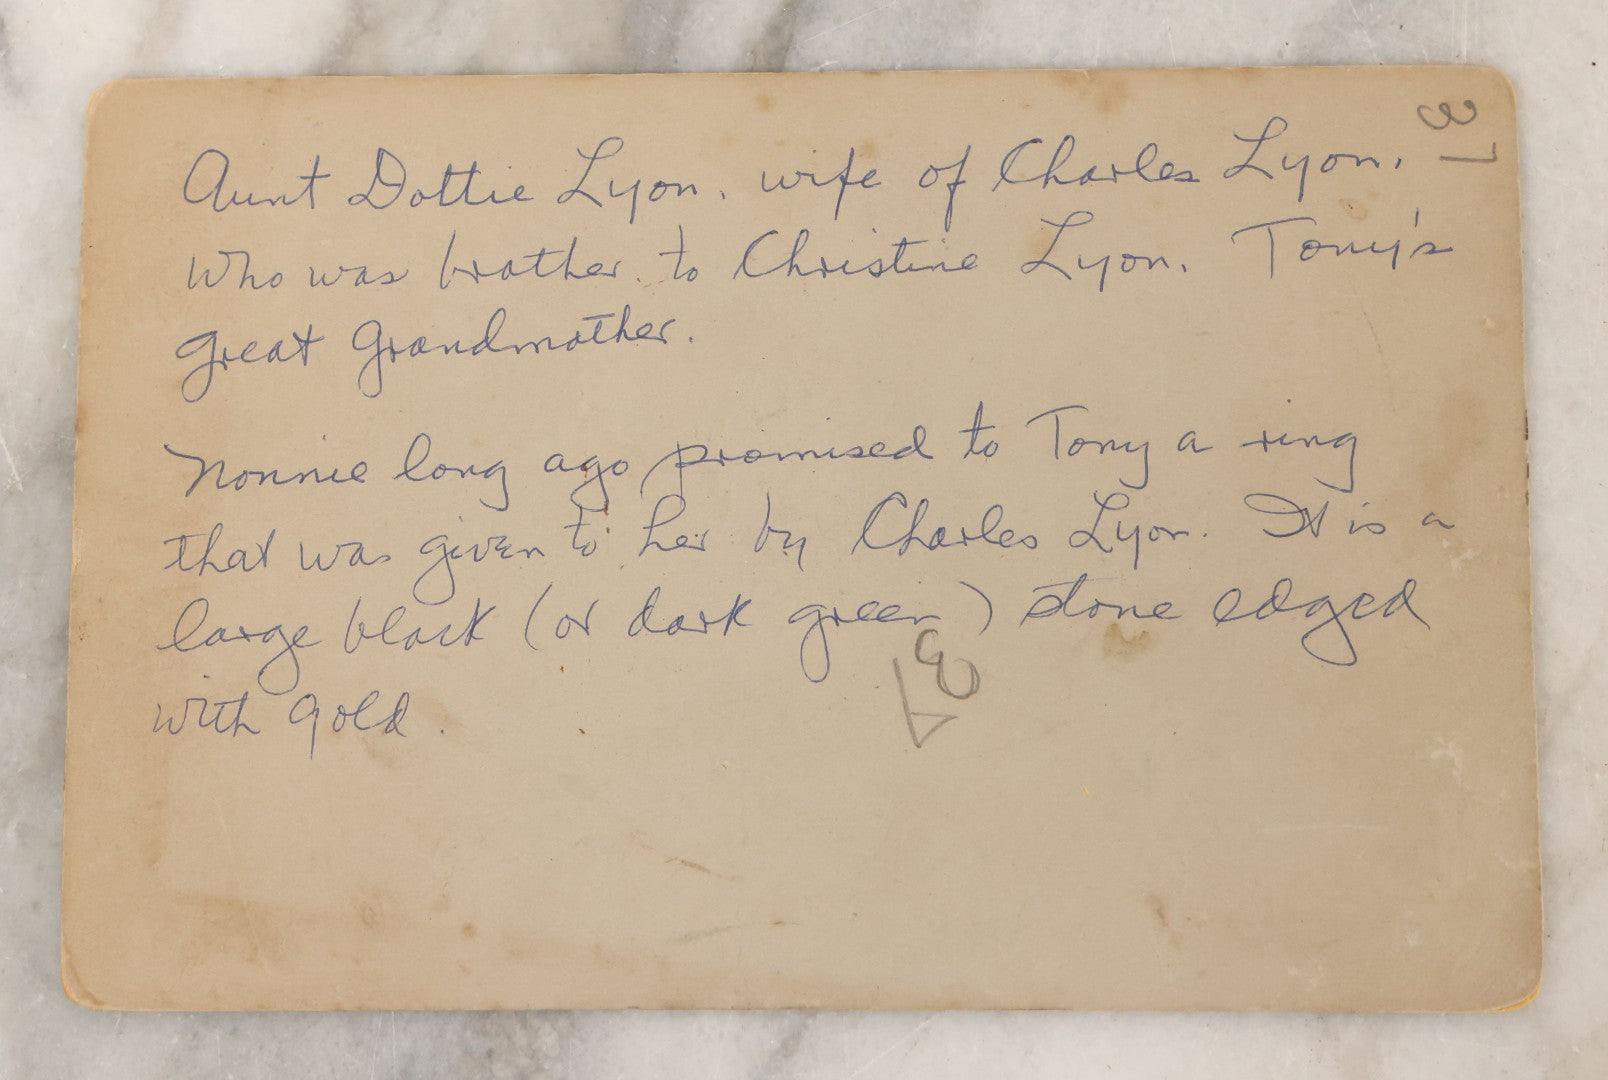 37
Aunt Dottie Lyon, wife of Charles Lyon,
who was brother to Christine Lyon, Tony's
great grandmother.
Nonnie long ago promised to Tony a ring
that was given to her by Charles Lyon. It is a
large black (or dark green) stone edged
with gold.
37